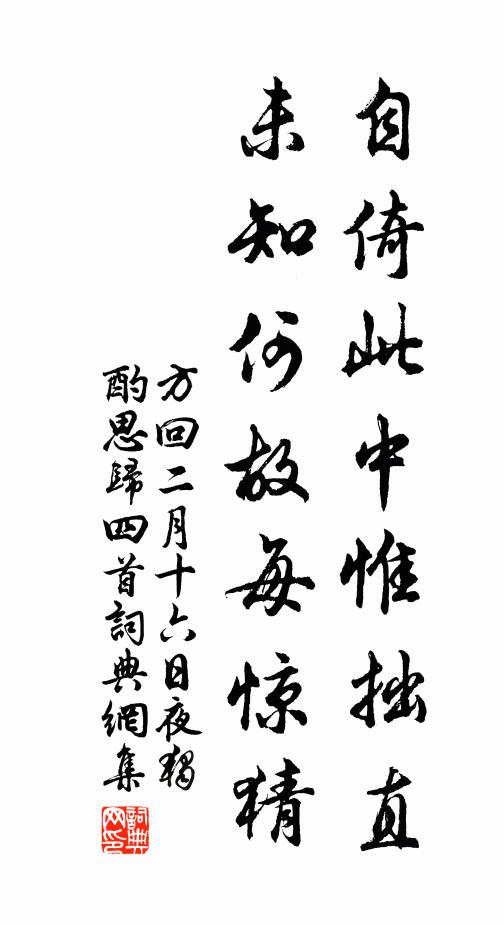 自倚此中惟拙直
未知何故每惊猜
方回二月十六日夜獨
酌思歸四首詞典網集
詞典
网印